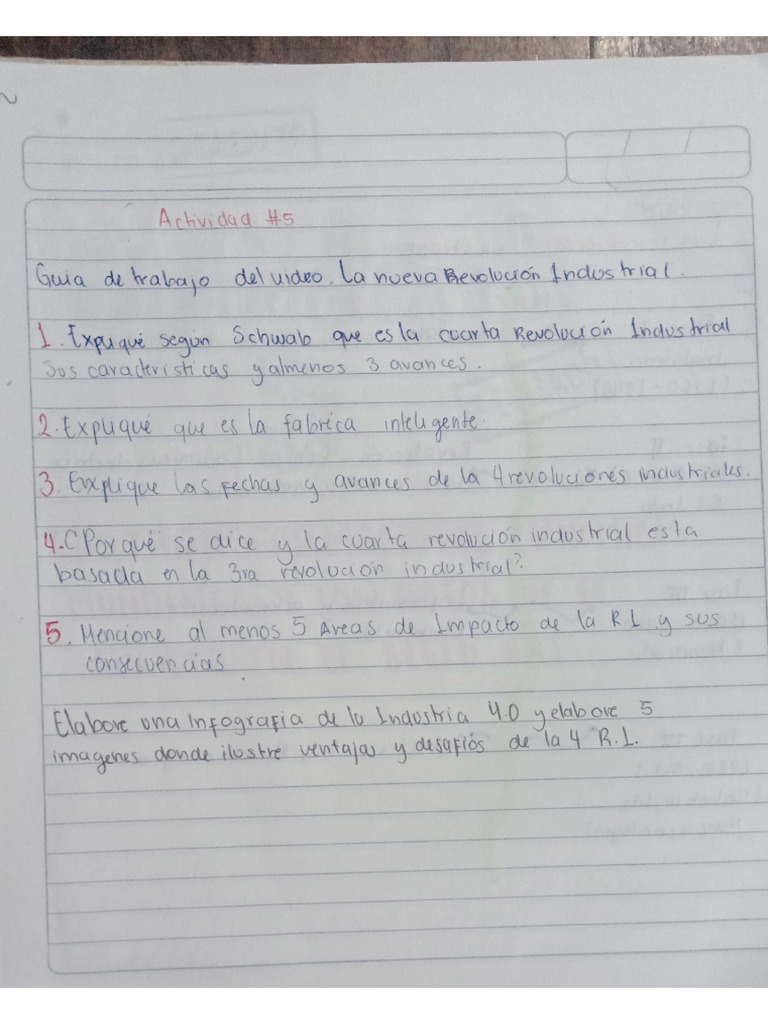 Actividad #5
Guia de trabajo del video. La nueva Revolución Industrial.
1. Explique según Schwab que es la cuarta Revolución Industrial
Sus caracteristicas y almenos 3 avances.
2. Explique que es la fabrica inteligente.
3. Exxplique las fechas y avances de la 4 revoluciones industriales.
4. ¿Por qué se dice y la cuarta revolución industrial esta
basada en la 3ra revolución industrial?
5. Mencione al menos 5 Areas de Impacto de la R.I y sus
consecuencias
Elabore una Infografia de la Industria 4.0 y elabore 5
imagenes donde ilustre ventajas y desafios de la 4 R.I.